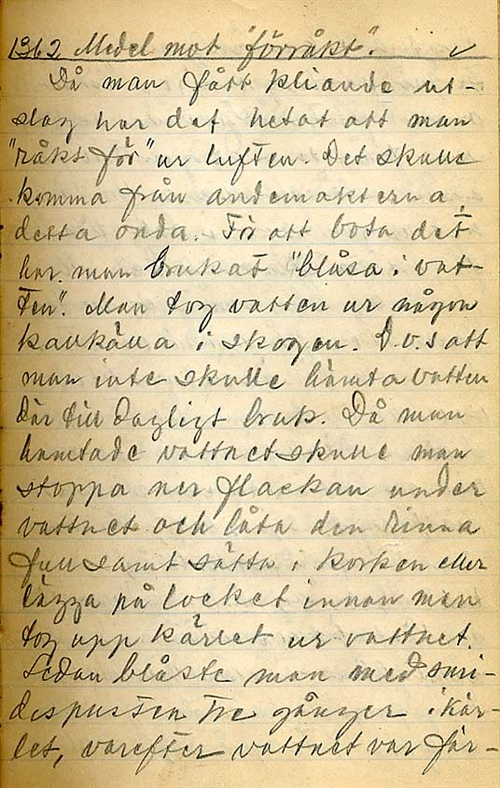 1362. Medel mot "förråkt".
Då man fått kliande ut-
slag har det hetat att man
"råkt för" ur luften. Det skulle
komma från andemakterna
detta onda. För att bota det
har man brukat "blåsa i vat-
ten". Man tog vatten ur någon
kallkälla i skogen. D.v.s att
man inte skulle hämta vatten
där till dagligt bruk. Då man
hämtade vattnet skulle man
stoppa ner flackan under
vattnet och låta den rinna
full samt sätta i korken eller
lägga på locket innan man
tog upp kärlet ur vattnet.
Sedan blåste man med smi-
despusten tre gånger i kär-
let, varefter vattnet var fär-